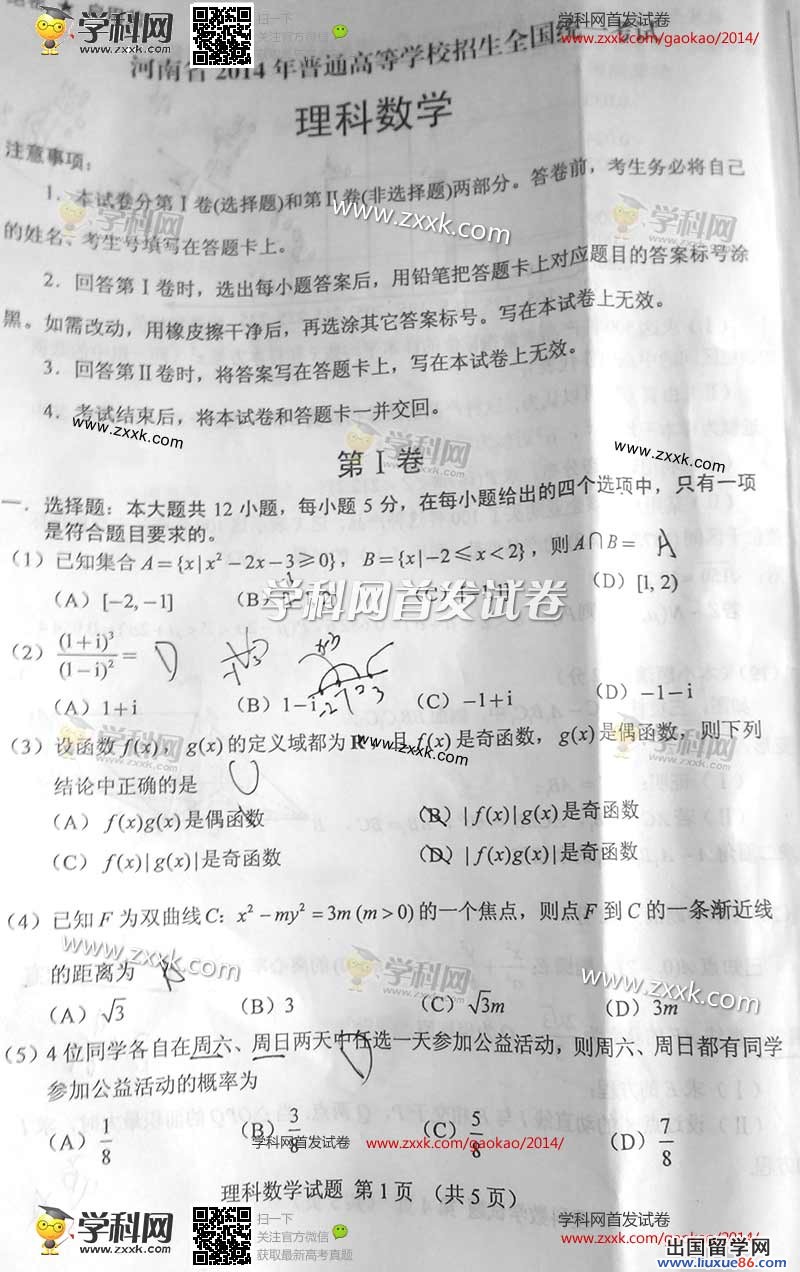 学科网
www.zxxk.com
扫一下
关注官方微信
学科网首发试卷
www.zxxk.com/gaokao/2014/
河南省 2014 年普通高等学校招生全国统一考试
理科数学
注意事项:
1. 本试卷分第Ⅰ卷(选择题)和第Ⅱ卷(非选择题)两部分。答卷前,考生务必将自己
www.zxxk.com
学科网
学科网
的姓名、考生号填写在答题卡上。
2. 回答第Ⅰ卷时,选出每小题答案后,用铅笔把答题卡上对应题目的答案标号涂
黑。如需改动,用橡皮擦干净后,再选涂其它答案标号。写在本试卷上无效。
3. 回答第Ⅱ卷时,将答案写在答题卡上,写在本试卷上无效。
4. 考试结束后,将本试卷和答题卡一并交回。
www.zxxk.com
学科网
www.zxxk.com
第Ⅰ卷
一. 选择题:本大题共 12 小题,每小题 5 分,在每小题给出的四个选项中,只有一项
是符合题目要求的。
(1) 已知集合 A={x|x²-2x-3⩾0}, B={x|-2⩽x<2}, 则A∩B= A
(A) [-2,-1] (B) (C) [-1,1] (D) [1,2)
学科网首发试卷
(2) (1+i)³/(1-i)² = D
(A) 1+i (B) 1-i (C) -1+i (D) -1-i
-2 -1 2 3
学科网
学科网
(3) 设函数 f(x), g(x) 的定义域都为 R,且 f(x) 是奇函数, g(x) 是偶函数, 则下列
www.zxxk.com
结论中正确的是 C
(A) f(x)g(x) 是偶函数 (B) |f(x)|g(x) 是奇函数
(C) f(x)|g(x)| 是奇函数 (D) |f(x)g(x)| 是奇函数
(4) 已知 F 为双曲线 C: x²-my²=3m (m>0) 的一个焦点,则点 F 到 C 的一条渐近线
www.zxxk.com
学科网
www.zxxk.com
的距离为 A
(A) √3 (B) 3 (C) √3m (D) 3m
(5) 4 位同学各自在周六、周日两天中任选一天参加公益活动,则周六、周日都有同学
参加公益活动的概率为 D
(A) 1/8 (B) 3/8 (C) 5/8 (D) 7/8
学科网首发试卷
www.zxxk.com/gaokao/2014/
理科数学试题 第 1 页 (共 5 页)
学科网
www.zxxk.com
扫一下
关注官方微信
获取最新高考真题
学科网首发试卷
www.zxxk.com/gaokao/2014/
出国留学网
www.liuxue86.com